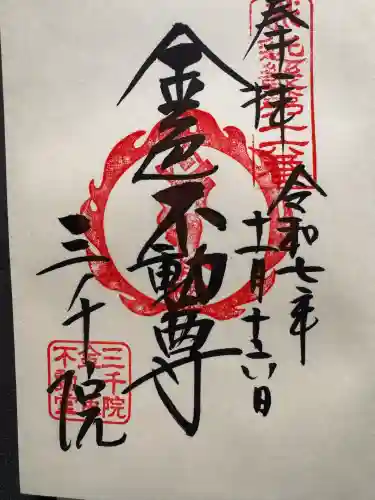 奉拝
令和七年
十一月十六日
金色不動尊
三千院
三千院
金色
不動堂